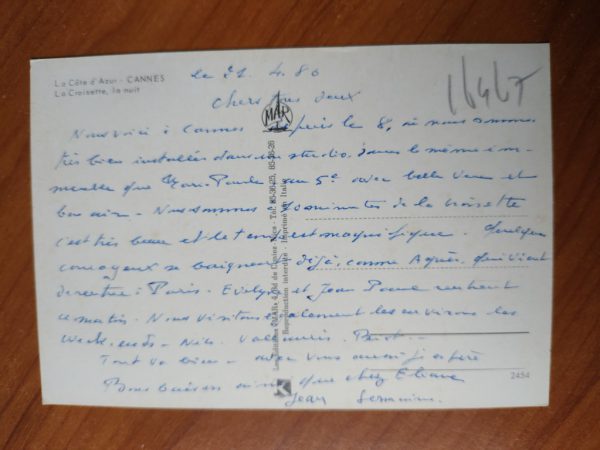 La Côte d'Azur - CANNES
La Croisette, la nuit
le 21. 4. 80
Chers tous deux
16467
MAR
Nous voici à Cannes depuis le 8, où nous sommes
très bien installés dans un studio, dans le même im-
meuble que Marie-Paule au 5e avec belle vue et
bon air - Nous sommes à minutes de la Croisette
c'est très beau et le temps est magnifique. Quelques
courageux se baignent déjà, comme Agnès, qui vient
directrice à Paris. Evelyne et Jean Pierre rentrent
ce matin. Nous visitons également les environs les
Week-ends - Nice. Vallauris.
Tout va bien - avec vous aussi j'espère
Bons baisers ainsi que chez Eliane
Jean Germaine.
Reproduction interdite - Imprimé en Italie
2454